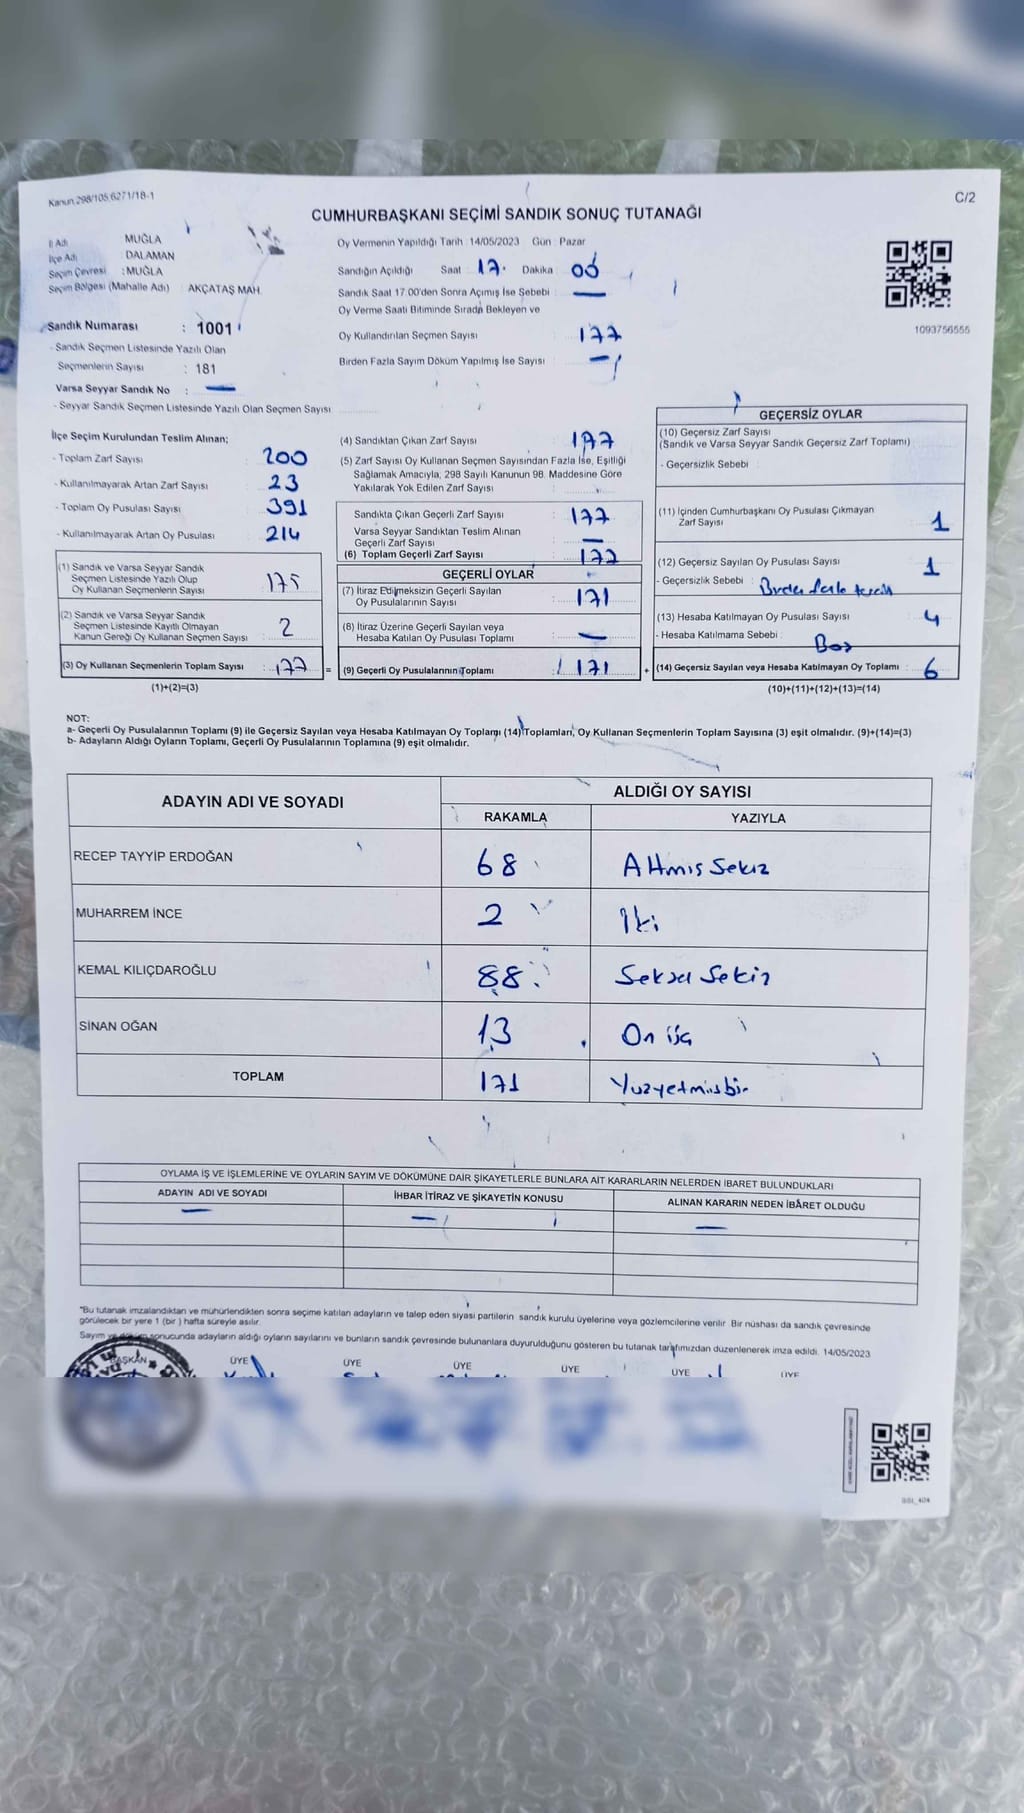 Kanun:298/105;6271/18-1
C/2
CUMHURBAŞKANI SEÇİMİ SANDIK SONUÇ TUTANAĞI
İl Adı MUĞLA
İlçe Adı DALAMAN
Seçim Çevresi : MUĞLA
Seçim Bölgesi (Mahalle Adı) : AKÇATAŞ MAH.
Sandık Numarası : 1001
- Sandık Seçmen Listesinde Yazılı Olan
Seçmenlerin Sayısı : 181
Varsa Seyyar Sandık No : —
- Seyyar Sandık Seçmen Listesinde Yazılı Olan Seçmen Sayısı
Oy Vermenin Yapıldığı Tarih : 14/05/2023 Gün : Pazar
Sandığın Açıldığı Saat 17 Dakika 00
Sandık Saat 17.00'den Sonra Açımış İse Sebebi : —
Oy Verme Saati Bitiminde Sırada Bekleyen ve
Oy Kullandırılan Seçmen Sayısı : 177
Birden Fazla Sayım Döküm Yapılmış İse Sayısı : —
1093756555
İlçe Seçim Kurulundan Teslim Alınan;
- Toplam Zarf Sayısı : 200
- Kullanılmayarak Artan Zarf Sayısı : 23
- Toplam Oy Pusulası Sayısı : 391
- Kullanılmayarak Artan Oy Pusulası : 214
(1) Sandık ve Varsa Seyyar Sandık
Seçmen Listesinde Yazılı Olup
Oy Kullanan Seçmenlerin Sayısı : 175
(2) Sandık ve Varsa Seyyar Sandık
Seçmen Listesinde Kayıtlı Olmayan
Kanun Gereği Oy Kullanan Seçmen Sayısı : 2
(3) Oy Kullanan Seçmenlerin Toplam Sayısı : 177 =
(1)+(2)=(3)
(4) Sandıktan Çıkan Zarf Sayısı : 177
(5) Zarf Sayısı Oy Kullanan Seçmen Sayısından Fazla İse, Eşitliği
Sağlamak Amacıyla, 298 Sayılı Kanunun 98. Maddesine Göre
Yakılarak Yok Edilen Zarf Sayısı :
Sandıkta Çıkan Geçerli Zarf Sayısı : 177
Varsa Seyyar Sandıktan Teslim Alınan
Geçerli Zarf Sayısı : —
(6) Toplam Geçerli Zarf Sayısı : 177
GEÇERLİ OYLAR
(7) İtiraz Edilmeksizin Geçerli Sayılan
Oy Pusulalarının Sayısı : 171
(8) İtiraz Üzerine Geçerli Sayılan veya
Hesaba Katılan Oy Pusulası Toplamı : —
(9) Geçerli Oy Pusulalarının Toplamı : 171 +
GEÇERSİZ OYLAR
(10) Geçersiz Zarf Sayısı
(Sandık ve Varsa Seyyar Sandık Geçersiz Zarf Toplamı)
- Geçersizlik Sebebi :
(11) İçinden Cumhurbaşkanı Oy Pusulası Çıkmayan
Zarf Sayısı : 1
(12) Geçersiz Sayılan Oy Pusulası Sayısı : 1
- Geçersizlik Sebebi : Birden fazla tercih
(13) Hesaba Katılmayan Oy Pusulası Sayısı : 4
- Hesaba Katılmama Sebebi : Boş
(14) Geçersiz Sayılan veya Hesaba Katılmayan Oy Toplamı : 6
(10)+(11)+(12)+(13)=(14)
NOT:
a- Geçerli Oy Pusulalarının Toplamı (9) ile Geçersiz Sayılan veya Hesaba Katılmayan Oy Toplamı (14) Toplamları, Oy Kullanan Seçmenlerin Toplam Sayısına (3) eşit olmalıdır. (9)+(14)=(3)
b- Adayların Aldığı Oyların Toplamı, Geçerli Oy Pusulalarının Toplamına (9) eşit olmalıdır.
ADAYIN ADI VE SOYADI ALDIĞI OY SAYISI
RAKAMLA YAZIYLA
RECEP TAYYİP ERDOĞAN 68 Altmış Sekiz
MUHARREM İNCE 2 İki
KEMAL KILIÇDAROĞLU 88 Seksen Sekiz
SİNAN OĞAN 13 On üç
TOPLAM 171 Yüzyetmişbir
OYLAMA İŞ VE İŞLEMLERİNE VE OYLARIN SAYIM VE DÖKÜMÜNE DAİR ŞİKAYETLERLE BUNLARA AİT KARARLARIN NELERDEN İBARET BULUNDUKLARI
ADAYIN ADI VE SOYADI İHBAR İTİRAZ VE ŞİKAYETİN KONUSU ALINAN KARARIN NEDEN İBARET OLDUĞU
— — —
*Bu tutanak imzalandıktan ve mühürlendikten sonra seçime katılan adayların ve talep eden siyasi partilerin sandık kurulu üyelerine veya gözlemcilerine verilir. Bir nüshası da sandık çevresinde
görülecek bir yere 1 (bir) hafta süreyle asılır.
Sayım ve döküm sonucunda adayların aldığı oyların sayılarını ve bunların sandık çevresinde bulunanlara duyurulduğunu gösteren bu tutanak tarafımızdan düzenlenerek imza edildi. 14/05/2023
BAŞKAN ÜYE ÜYE ÜYE ÜYE ÜYE ÜYE